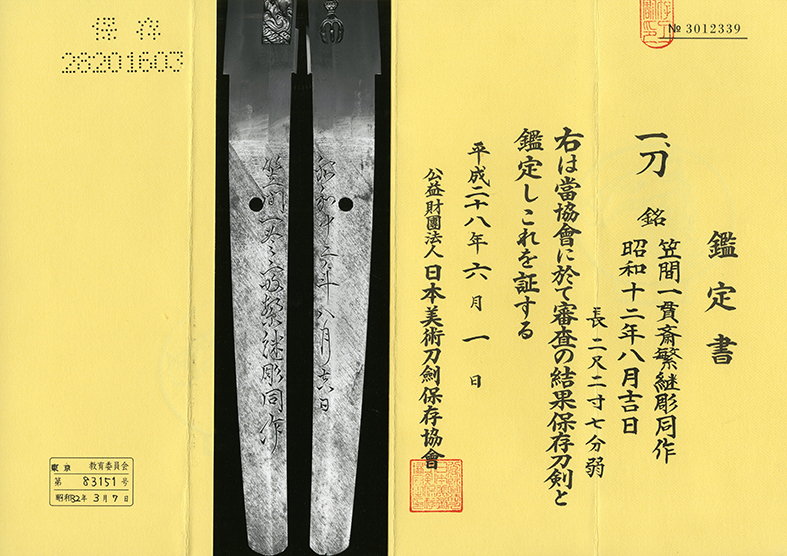 № 3012339
鑑定書
一、刀 銘 笠間一貫斎繁継彫同作
昭和十二年八月吉日
長 二尺二寸七分弱
右は當協會に於て審査の結果保存刀剣と
鑑定しこれを証する
平成二十八年六月一日
公益財團法人 日本美術刀劍保存協會
昭和十二年八月吉日
笠間一貫斎繁継彫同作
保存
28201603
東京 教育委員会
第 83151 号
昭和32年 3月 7日